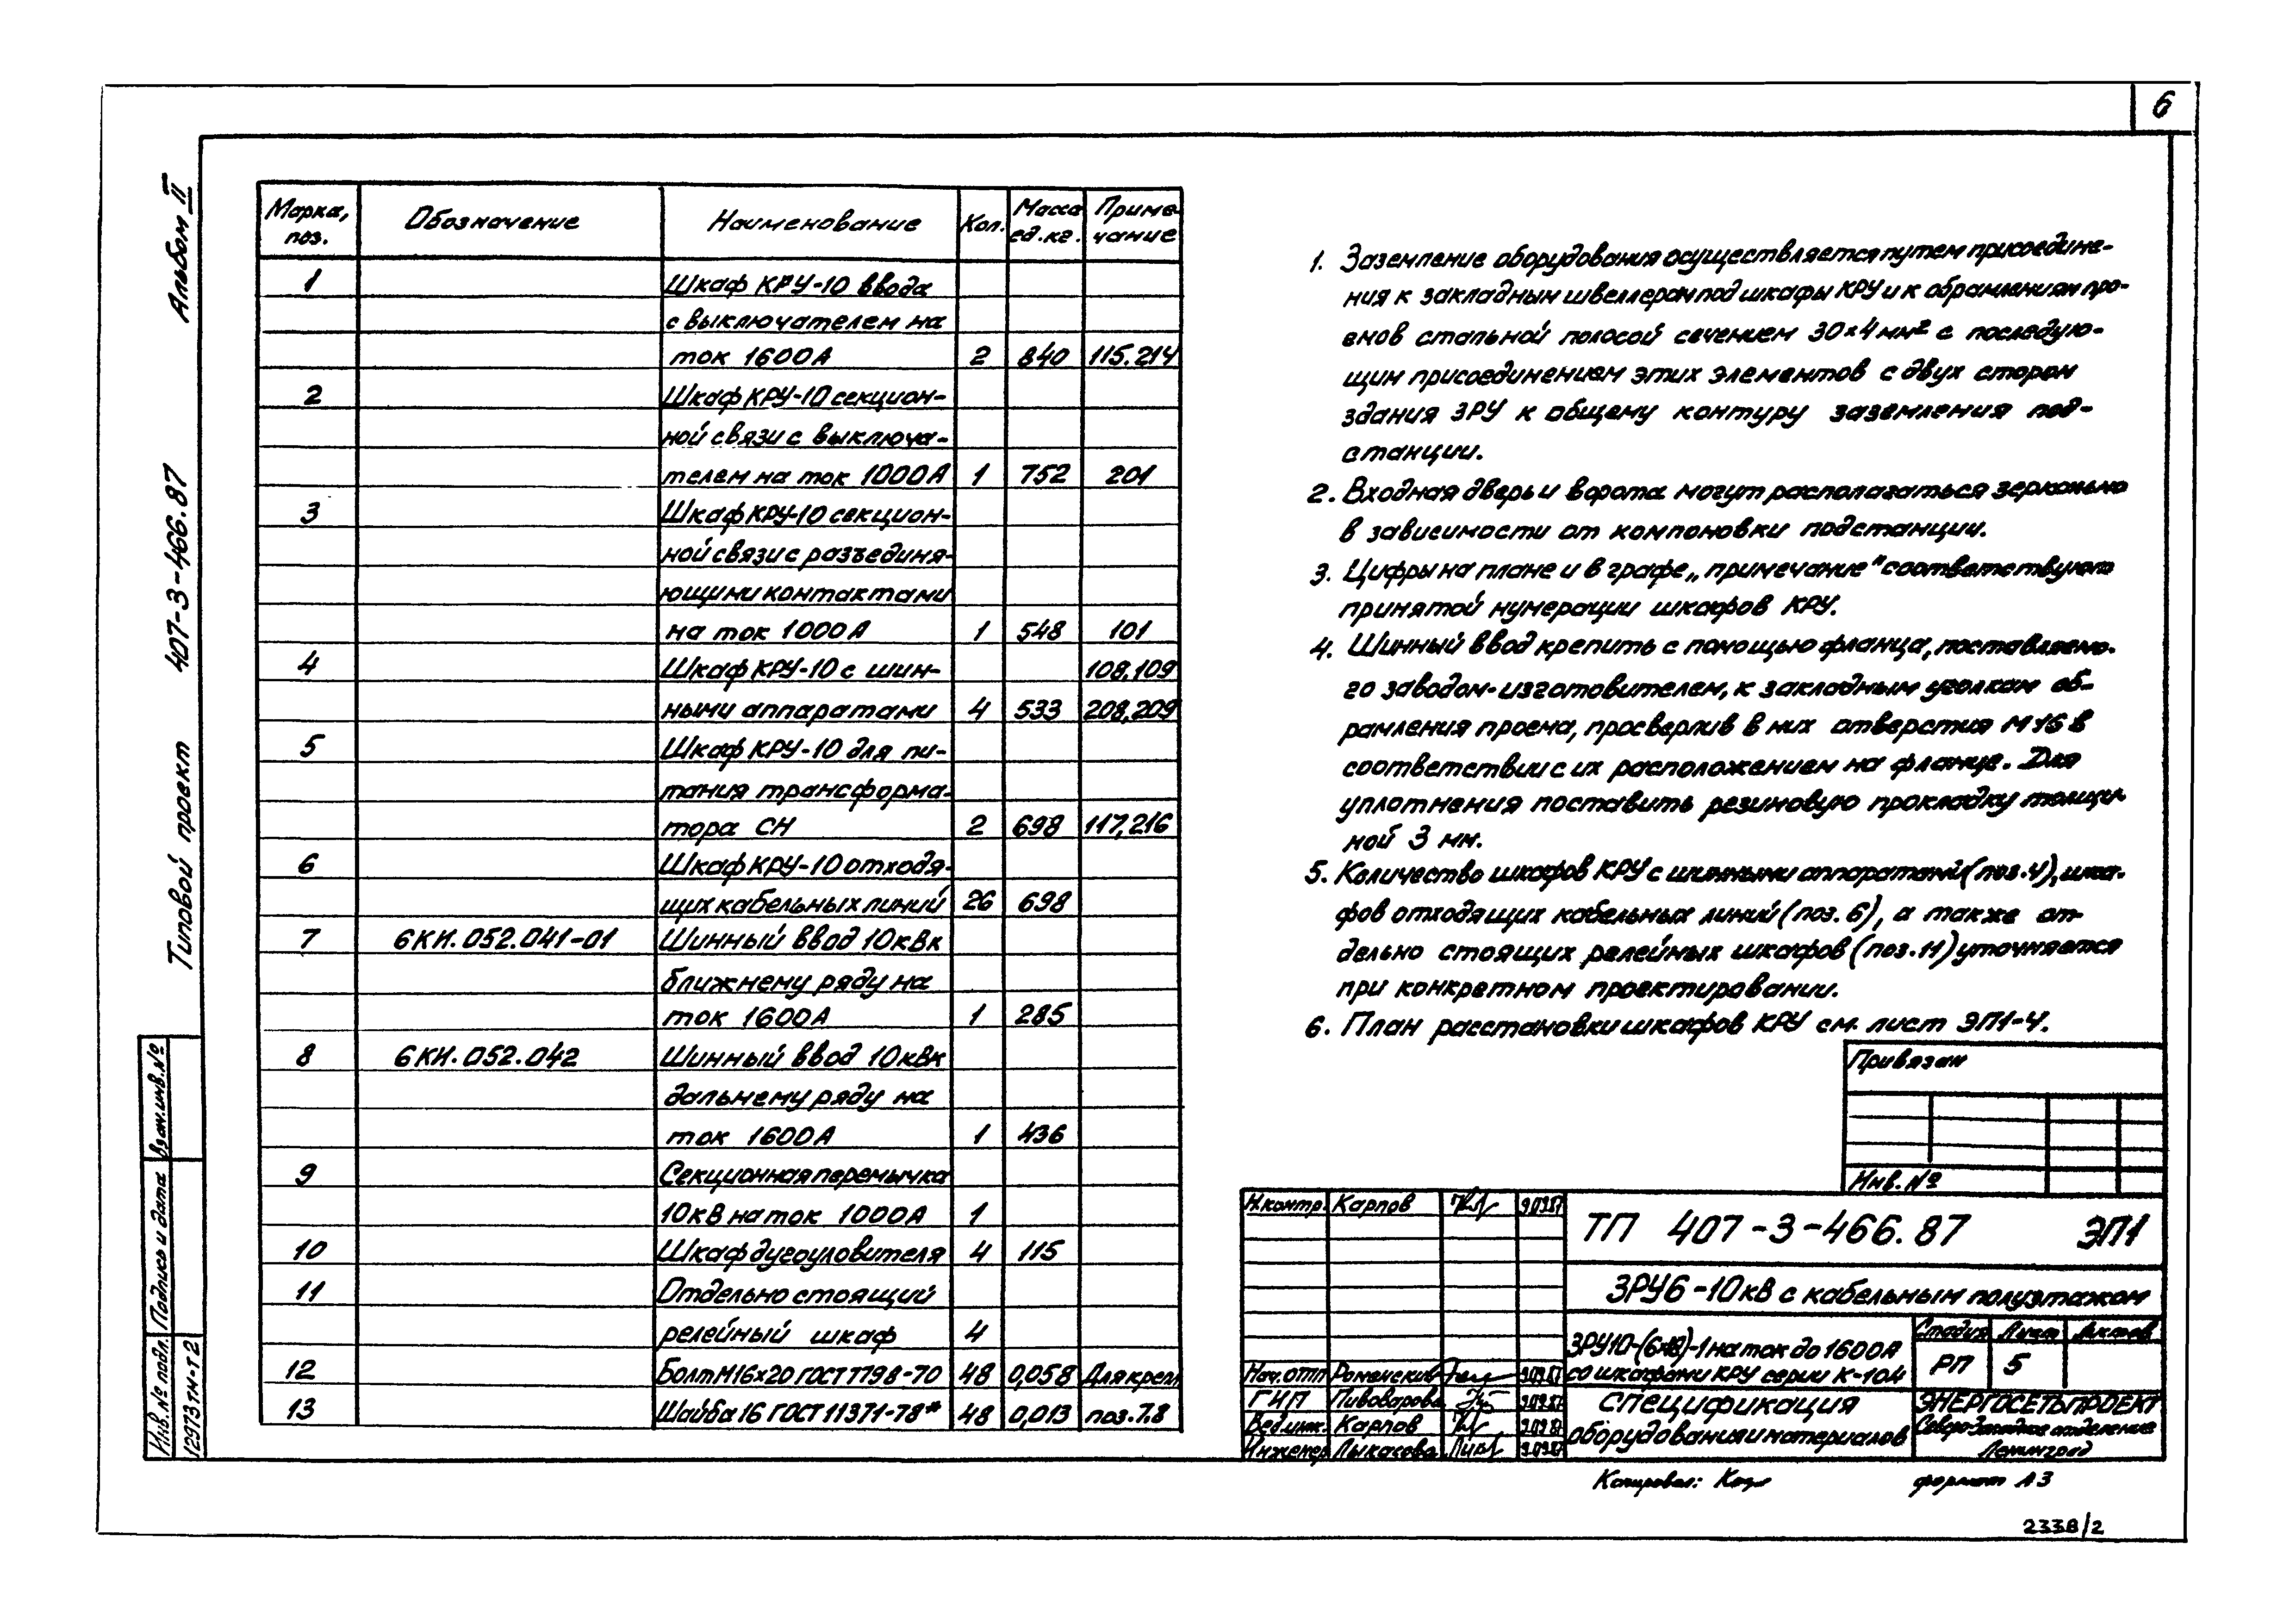 6
Альбом II
Типовой проект 407-3-466.87
Взам.инв.№
Подпись и дата
Инв.№ подл.
12973тм-т2
Марка, поз. Обозначение Наименование Кол. Масса ед.кг. Приме-чание
1 Шкаф КРУ-10 ввода
с выключателем на
ток 1600А 2 840 115.214
2 Шкаф КРУ-10 секцион-
ной связи с выключа-
телем на ток 1000А 1 752 201
3 Шкаф КРУ-10 секцион-
ной связи с разъединя-
ющими контактами
на ток 1000А 1 548 101
4 Шкаф КРУ-10 с шин- 108,109
ными аппаратами 4 533 208,209
5 Шкаф КРУ-10 для пи-
тания трансформа-
тора СН 2 698 117,216
6 Шкаф КРУ-10 отходя-
щих кабельных линий 26 698
7 6КИ.052.041-01 Шинный ввод 10кВ к
ближнему ряду на
ток 1600А 1 285
8 6КИ.052.042 Шинный ввод 10кВ к
дальнему ряду на
ток 1600А 1 436
9 Секционная перемычка
10кВ на ток 1000А 1
10 Шкаф дугоуловителя 4 115
11 Отдельно стоящий
релейный шкаф 4
12 Болт М16х20 ГОСТ 7798-70 48 0,058 Для крепл.
13 Шайба 16 ГОСТ 11371-78* 48 0,013 поз.7,8
1. Заземление оборудования осуществляется путем присоедине-
ния к закладным швеллерам под шкафы КРУ и к обрамлениям про-
емов стальной полосой сечением 30х4 мм² с последую-
щим присоединением этих элементов с двух сторон
здания ЗРУ к общему контуру заземления под-
станции.
2. Входная дверь и ворота могут располагаться зеркально
в зависимости от компоновки подстанции.
3. Цифры на плане и в графе „примечание" соответствуют
принятой нумерации шкафов КРУ.
4. Шинный ввод крепить с помощью фланца, поставляемо-
го заводом-изготовителем, к закладным уголкам об-
рамления проема, просверлив в них отверстия М16 в
соответствии с их расположением на фланце. Для
уплотнения поставить резиновую прокладку толщи-
ной 3 мм.
5. Количество шкафов КРУ с шинными аппаратами (поз.4), шка-
фов отходящих кабельных линий (поз. 6), а также от-
дельно стоящих релейных шкафов (поз.11) уточняется
при конкретном проектировании.
6. План расстановки шкафов КРУ см. лист ЭП1-4.
Привязан
Инв.№
Н.контр. Карпов 9.09.87
ТП 407-3-466.87 ЭП1
ЗРУ 6-10кВ с кабельным полуэтажом
ЗРУ10-(6х8)-1 на ток до 1600А
со шкафами КРУ серии К-104
Стадия Лист Листов
РП 5
Нач.отп. Роменский 9.09.87
ГИП Пивоварова 9.09.87
Вед.инж. Карпов 9.09.87
Инженер Лыкасова 9.09.87
Спецификация
оборудования и материалов
ЭНЕРГОСЕТЬПРОЕКТ
Северо-Западное отделение
Ленинград
Копировал: формат А3
2338/2